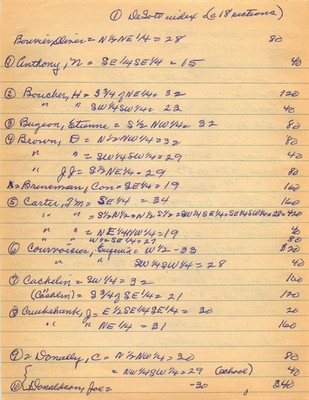 ① DeSoto index (a 18 sections)
Bouvier, Elmer = N½NE¼ = 28 80
① Anthony, N = SE¼SE¼ = 15 40
② Boucher, H = S¾ of NE¼ = 32 120
" " = SW¼SW¼ = 23 40
③ Bugeon, Etienne = S½ NW¼ = 32 80
④ Brown, B = N½NW¼ = 32 80
" " = SW¼SW¼ = 29 40
" J.J = S½NE¼ = 29 80
Breneman, Con = SE¼ = 19 160
⑤ Carter, J.M = SE¼ = 34 160
" " = S½N½+N½ S½+SW¼SE¼+SE¼SW¼ = 28 = 420
" " = NE¼NW¼ = 19 40
" " W½SE¼ = 27 80
⑥ Courvoisier, Eugenia = W½ - 33 320
" " SW¼SW¼ = 28 40
⑦ Cachelin = SW¼ = 32 160
(Cachlin) = S¾ of SE¼ = 21 120
⑧ Cruikshank, J = E½SE¼SE¼ = 30 20
" " NE¼ = 31 160
⑨ = Donally, C = N½NW¼ = 30 80
= NW¼SW¼ = 29 (school) 40
⑩ Donaldson, Joe = -30 240